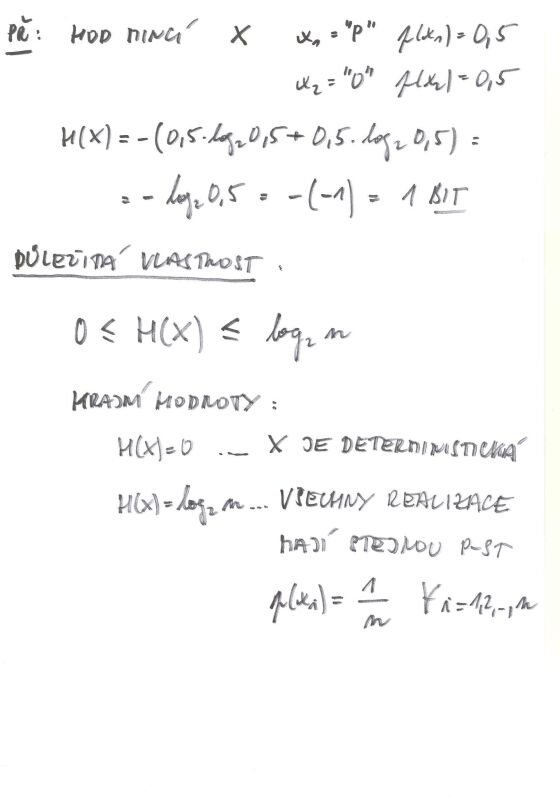 PŘ: HOD MINCÍ X x₁ = "P" p(x₁) = 0,5
x₂ = "O" p(x₂) = 0,5
H(X) = -(0,5·log₂0,5 + 0,5·log₂0,5) =
= - log₂0,5 = -(-1) = 1 BIT
DŮLEŽITÁ VLASTNOST:
0 ≤ H(X) ≤ log₂ n
KRAJNÍ HODNOTY:
H(X)=0 ... X JE DETERMINISTICKÁ
H(X)=log₂ n ... VŠECHNY REALIZACE
MAJÍ STEJNOU P-ST
p(xᵢ) = 1/n ∀ i = 1,2,..,n